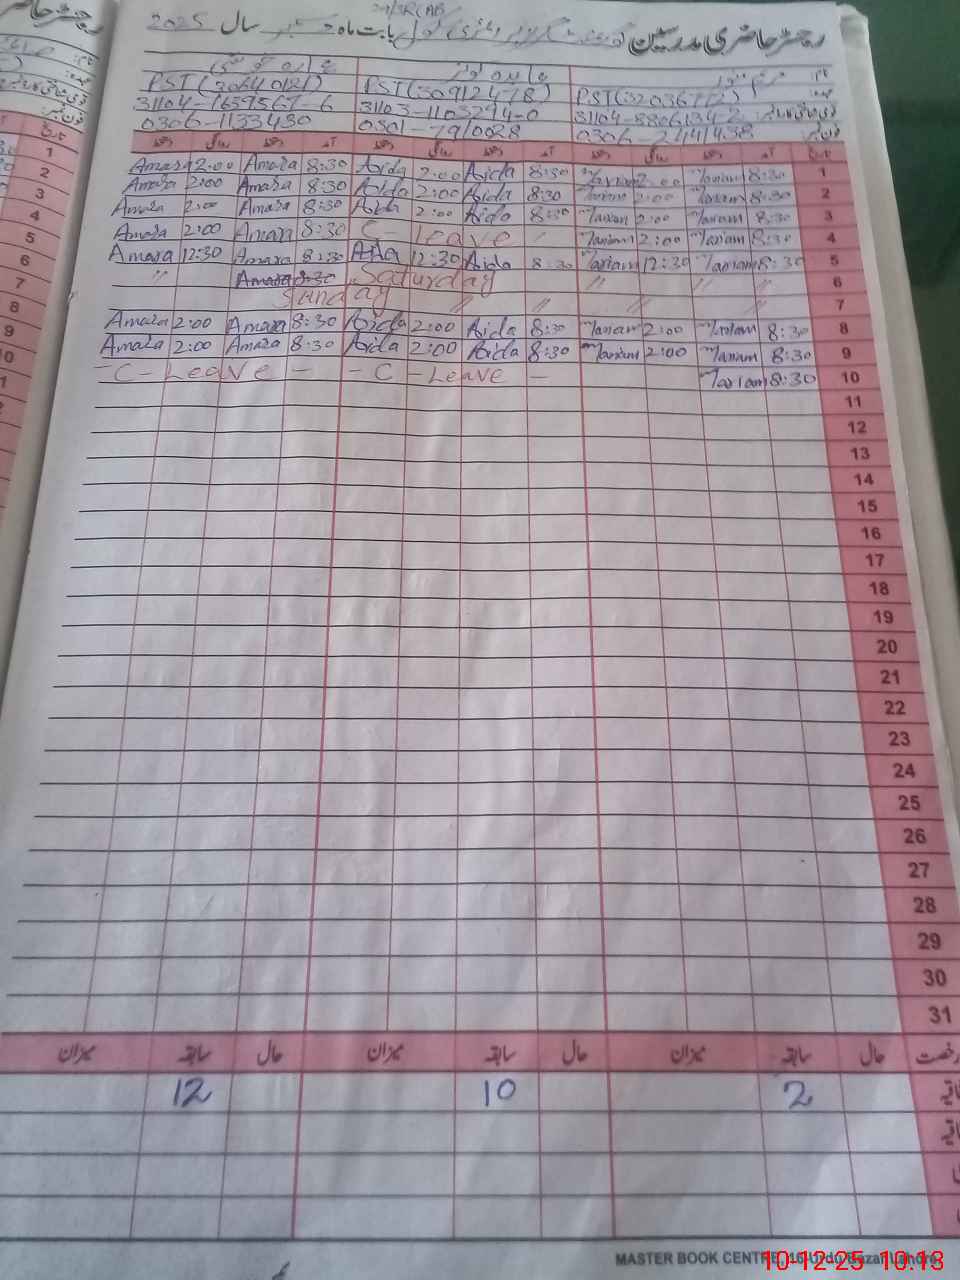 211/3R(AB
رجسٹر حاضری مدرسین گورنمنٹ گرلز سکول بابت ماہ دسمبر سال 2025
نام:
PST(30640121) PST(30912478) PST(32036712) عہدہ:
31104-1659567-6 31103-1103294-0 31104-8806134-2
0306-1133430 0301-7910028 0306-2441438 فون نمبر:
دستخط روانگی دستخط آمد دستخط روانگی دستخط آمد دستخط روانگی دستخط آمد تاریخ
Amara 2:00 Amara 8:30 Aida 2:00 Aida 8:30 Mariam 2:00 Mariam 8:30 1
Amara 2:00 Amara 8:30 Aida 2:00 Aida 8:30 Mariam 2:00 Mariam 8:30 2
Amara 2:00 Amara 8:30 Aida 2:00 Aida 8:30 Mariam 2:00 Mariam 8:30 3
Amara 2:00 Amara 8:30 C-Leave " Mariam 2:00 Mariam 8:30 4
Amara 12:30 Amara 8:30 Aida 12:30 Aida 8:30 Mariam 12:30 Mariam 8:30 5
" Amara 8:30 Saturday " " " 6
Sunday " " " " " 7
Amara 2:00 Amara 8:30 Aida 2:00 Aida 8:30 Mariam 2:00 Mariam 8:30 8
Amara 2:00 Amara 8:30 Aida 2:00 Aida 8:30 Mariam 2:00 Mariam 8:30 9
-C-Leave - -C-Leave - Mariam 8:30 10
11
12
13
14
15
16
17
18
19
20
21
22
23
24
25
26
27
28
29
30
31
میزان سابقہ حال میزان سابقہ حال میزان سابقہ حال رخصت
12 10 2
MASTER BOOK CENTRE, 16-Urdu Bazar Lahore
10-12-25 10:13